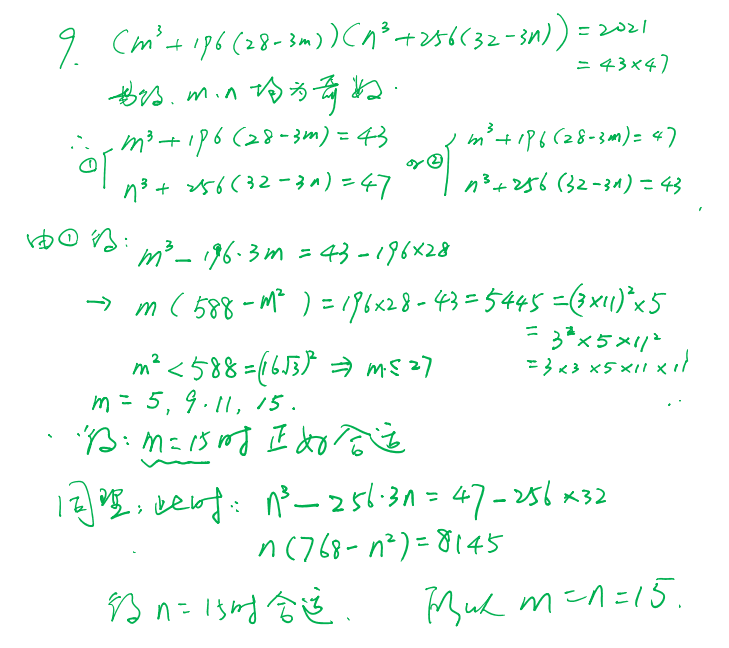 9. (m³+196(28-3m))(n³+256(32-3n)) = 2021
= 43×47
易得. m.n 均为奇数.
∴ ① { m³+196(28-3m)=43 or ② { m³+196(28-3m)=47
n³+256(32-3n)=47 n³+256(32-3n)=43
由①得: m³-196·3m = 43-196×28
→ m(588-m²)=196×28-43=5445=(3×11)²×5
= 3²×5×11²
m²<588=(16√3)² ⇒ m≤27 =3×3×5×11×11
m = 5, 9.11, 15.
得: m=15时正好合适
同理, 此时: n³-256·3n=47-256×32
n(768-n²)=8145
得n=15时合适. 所以 m=n=15.